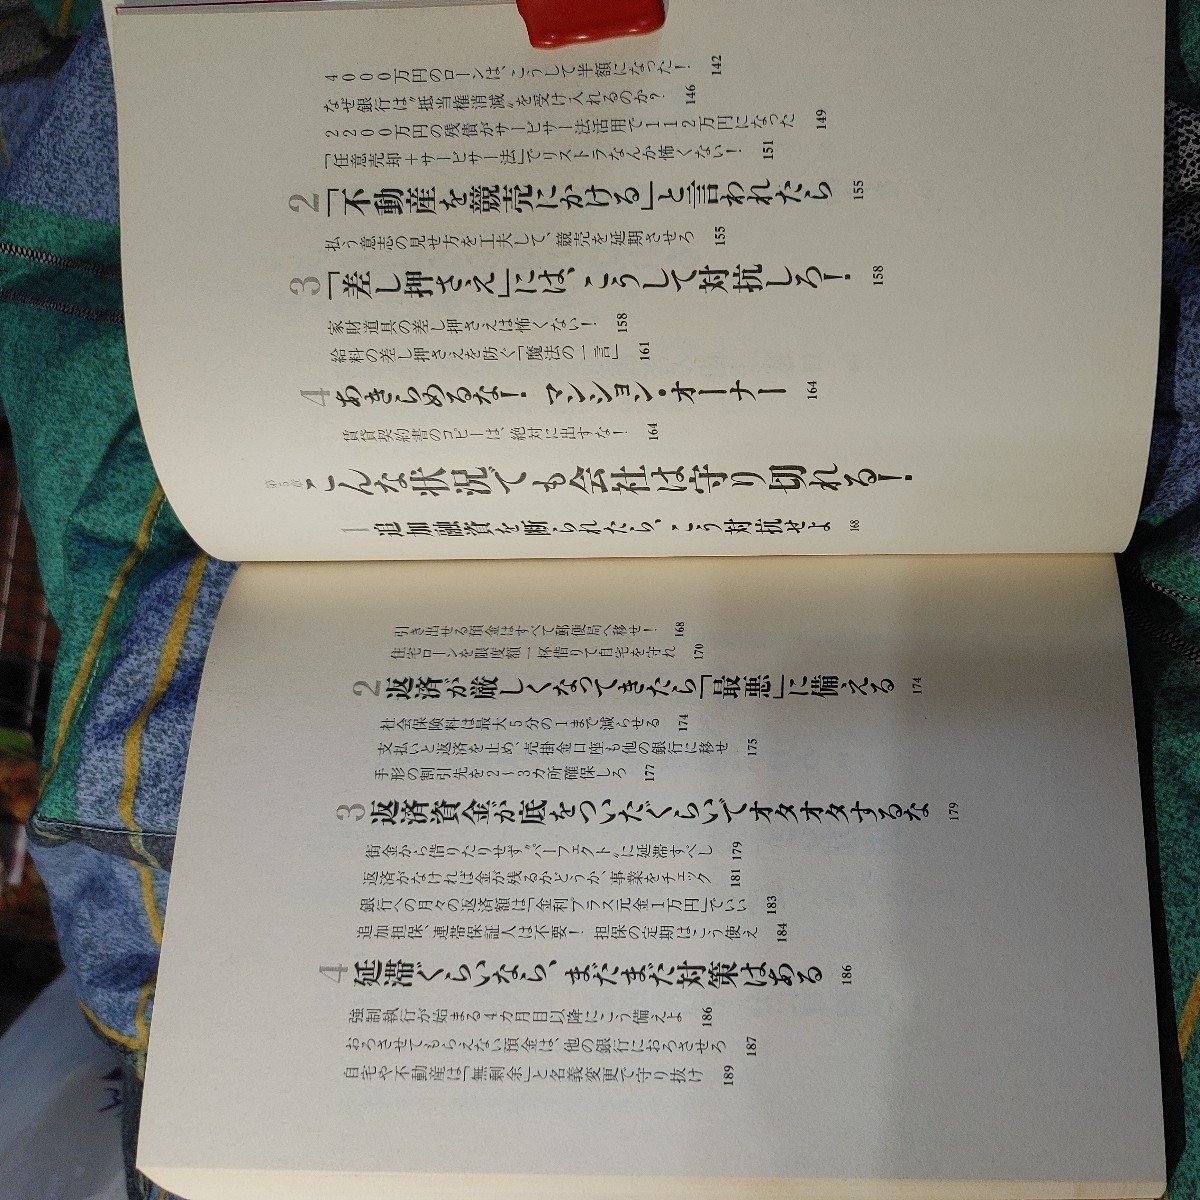 4000万円のローンは、こうして半額になった! 142
なぜ銀行は〝抵当権消滅〟を受け入れるのか? 146
2200万円の残債がサービサー法活用で112万円になった 149
「任意売却+サービサー法」でリストラなんか怖くない! 151
2 「不動産を競売にかける」と言われたら 155
払う意志の見せ方を工夫して、競売を延期させろ 155
3 「差し押さえ」には、こうして対抗しろ! 158
家財道具の差し押さえは怖くない! 158
給料の差し押さえを防ぐ「魔法の一言」 161
4 あきらめるな! マンション・オーナー 164
賃貸契約書のコピーは、絶対に出すな! 164
第5章 こんな状況でも会社は守り切れる!
1 追加融資を断られたら、こう対抗せよ 168
引き出せる預金はすべて郵便局へ移せ! 168
住宅ローンを限度額一杯借りて自宅を守れ 170
2 返済が厳しくなってきたら「最悪」に備える 174
社会保険料は最大5分の1まで減らせる 174
支払いと返済を止め、売掛金口座も他の銀行に移せ 175
手形の割引先を2〜3カ所確保しろ 177
3 返済資金が底をついたくらいでオタオタするな 179
街金から借りたりせず〝パーフェクト〟に延滞すべし 179
返済がなければ金が残るかどうか、事業をチェック 181
銀行への月々の返済額は「金利プラス元金1万円」でいい 183
追加担保、連帯保証人は不要! 担保の定期はこう使え 184
4 延滞ぐらいなら、まだまだ対策はある 186
強制執行が始まる4カ月目以降にこう備えよ 186
おろさせてもらえない預金は、他の銀行におろさせろ 187
自宅や不動産は「無剰余」と名義変更で守り抜け 189